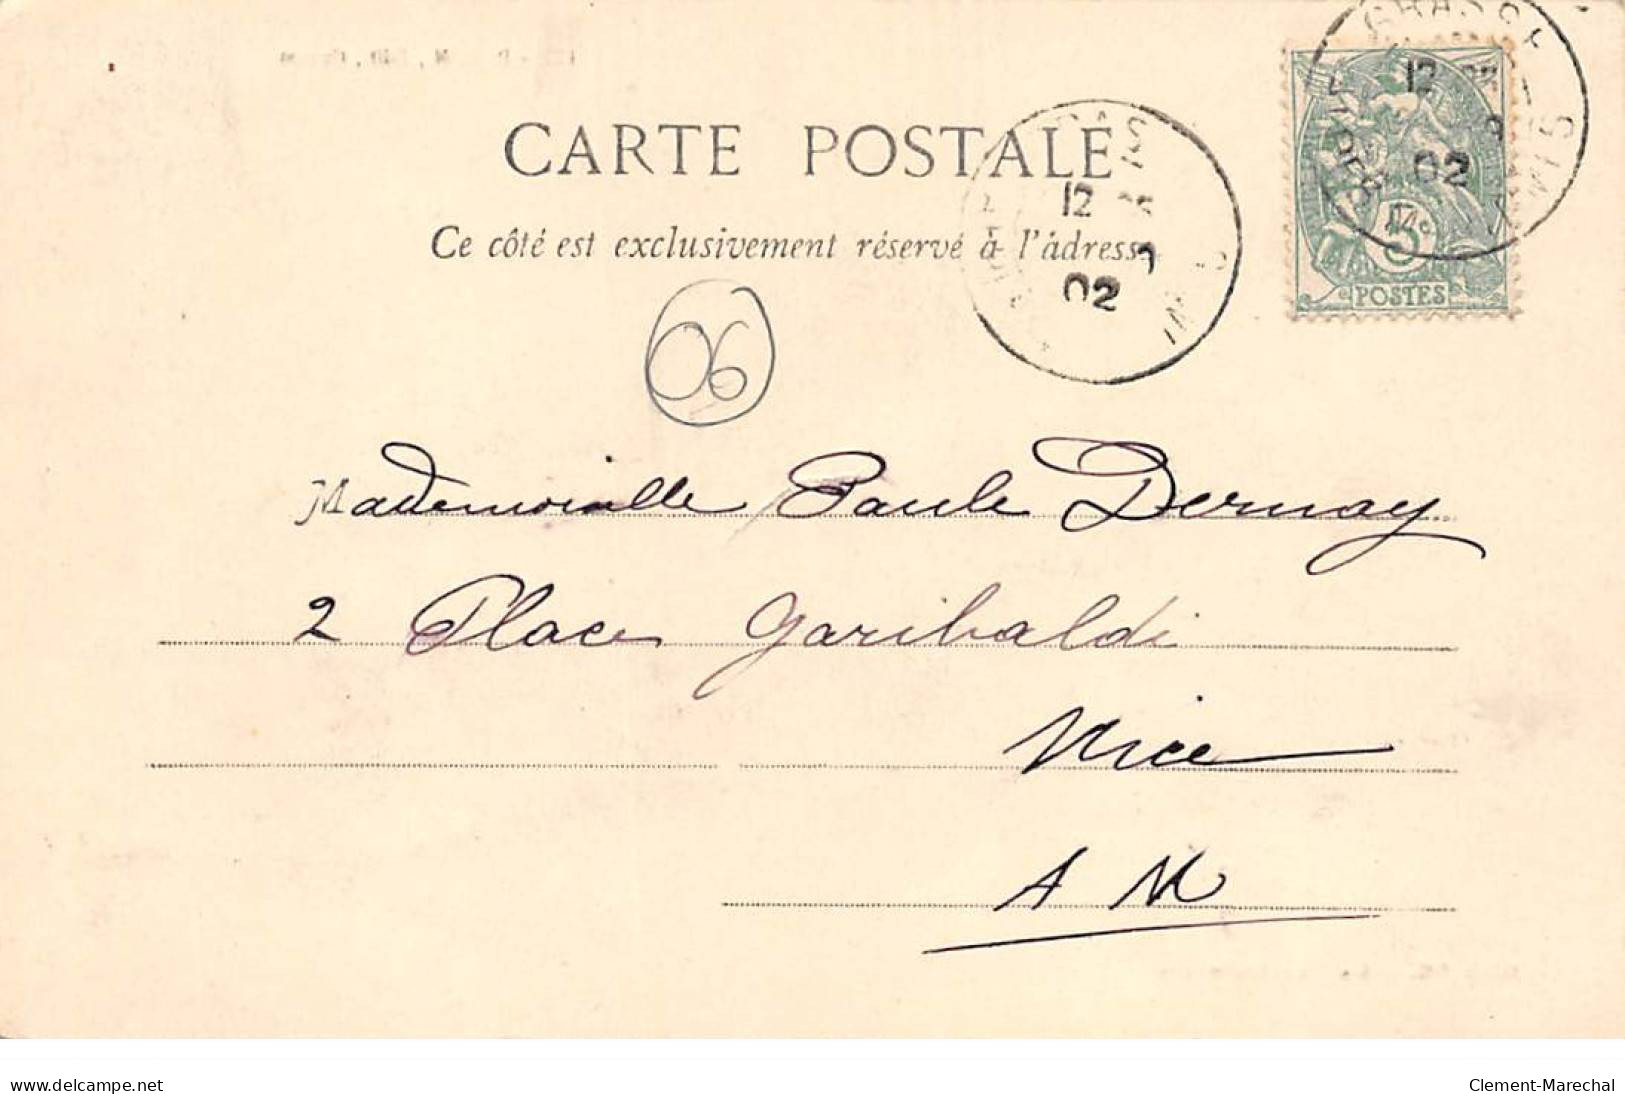 CARTE POSTALE
Ce côté est exclusivement réservé à l'adresse
12
02
12
02
5
POSTES
06
Mademoiselle Paule Dernay
2 Place Garibaldi
Nice
A M
www.delcampe.net
Clement-Marechal